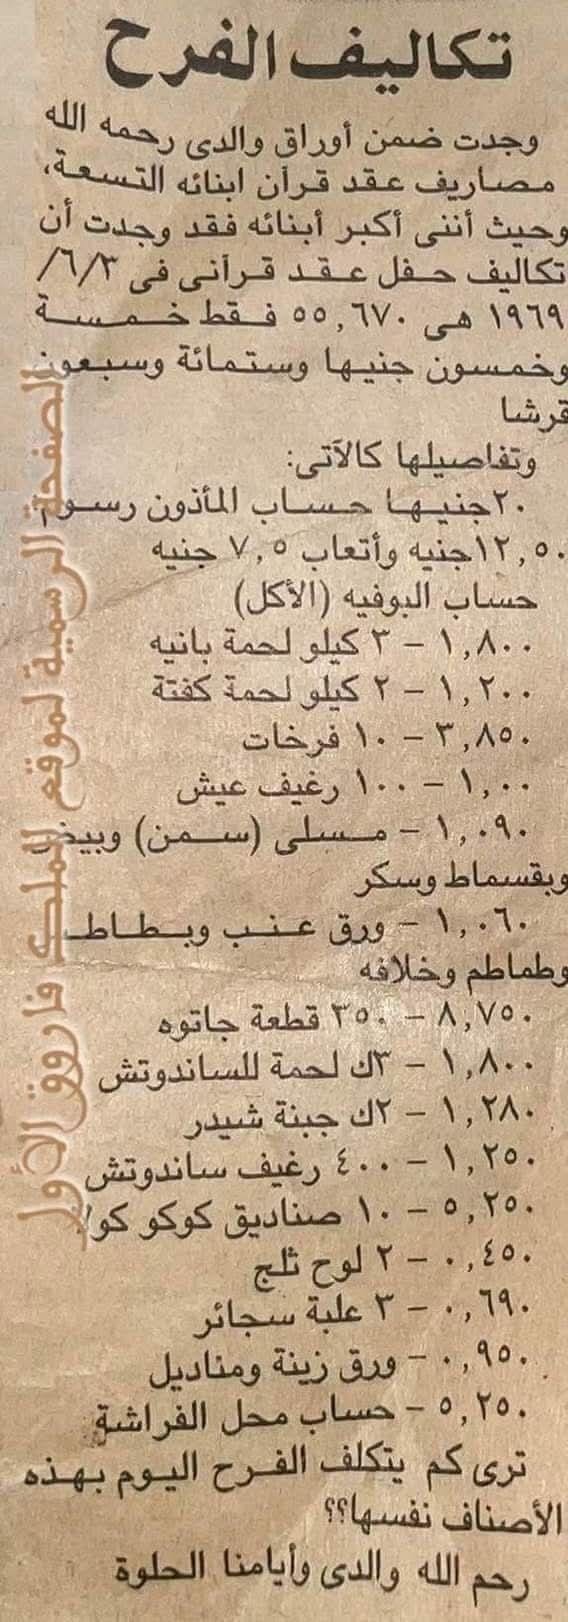 تكاليف الفرح
وجدت ضمن أوراق والدى رحمه الله
مصاريف عقد قرآن ابنائه التسعة،
وحيث أننى أكبر أبنائه فقد وجدت أن
تكاليف حفل عقد قرآنى فى ٦/٣/
١٩٦٩ هى ٥٥,٦٧٠ فقط خمسة
وخمسون جنيها وستمائة وسبعون
قرشا
وتفاصيلها كالآتى:
٢٠جنيها حساب المأذون رسوم
١٢,٥٠جنيه وأتعاب ٧,٥ جنيه
حساب البوفيه (الأكل)
١,٨٠٠ – ٣ كيلو لحمة بانيه
١,٢٠٠ – ٢ كيلو لحمة كفتة
٣,٨٥٠ – ١٠ فرخات
١,٠٠ – ١٠٠ رغيف عيش
١,٠٩٠ – مسلى (سمن) وبيض
وبقسماط وسكر
١,٠٦٠ – ورق عنب وبطاطس
وطماطم وخلافه
٨,٧٥٠ – ٣٥٠ قطعة جاتوه
١,٨٠٠ – ٣ك لحمة للساندوتش
١,٢٨٠ – ٢ك جبنة شيدر
١,٢٥٠ – ٤٠٠ رغيف ساندوتش
٥,٢٥٠ – ١٠ صناديق كوكو كولا
٠,٤٥٠ – ٢ لوح ثلج
٠,٦٩٠ – ٣ علبة سجائر
٠,٩٥٠ – ورق زينة ومناديل
٥,٢٥٠ – حساب محل الفراشة
ترى كم يتكلف الفرح اليوم بهذه
الأصناف نفسها؟؟
رحم الله والدى وأيامنا الحلوة
الصفحة الرسمية لموقع الملك فاروق الأول